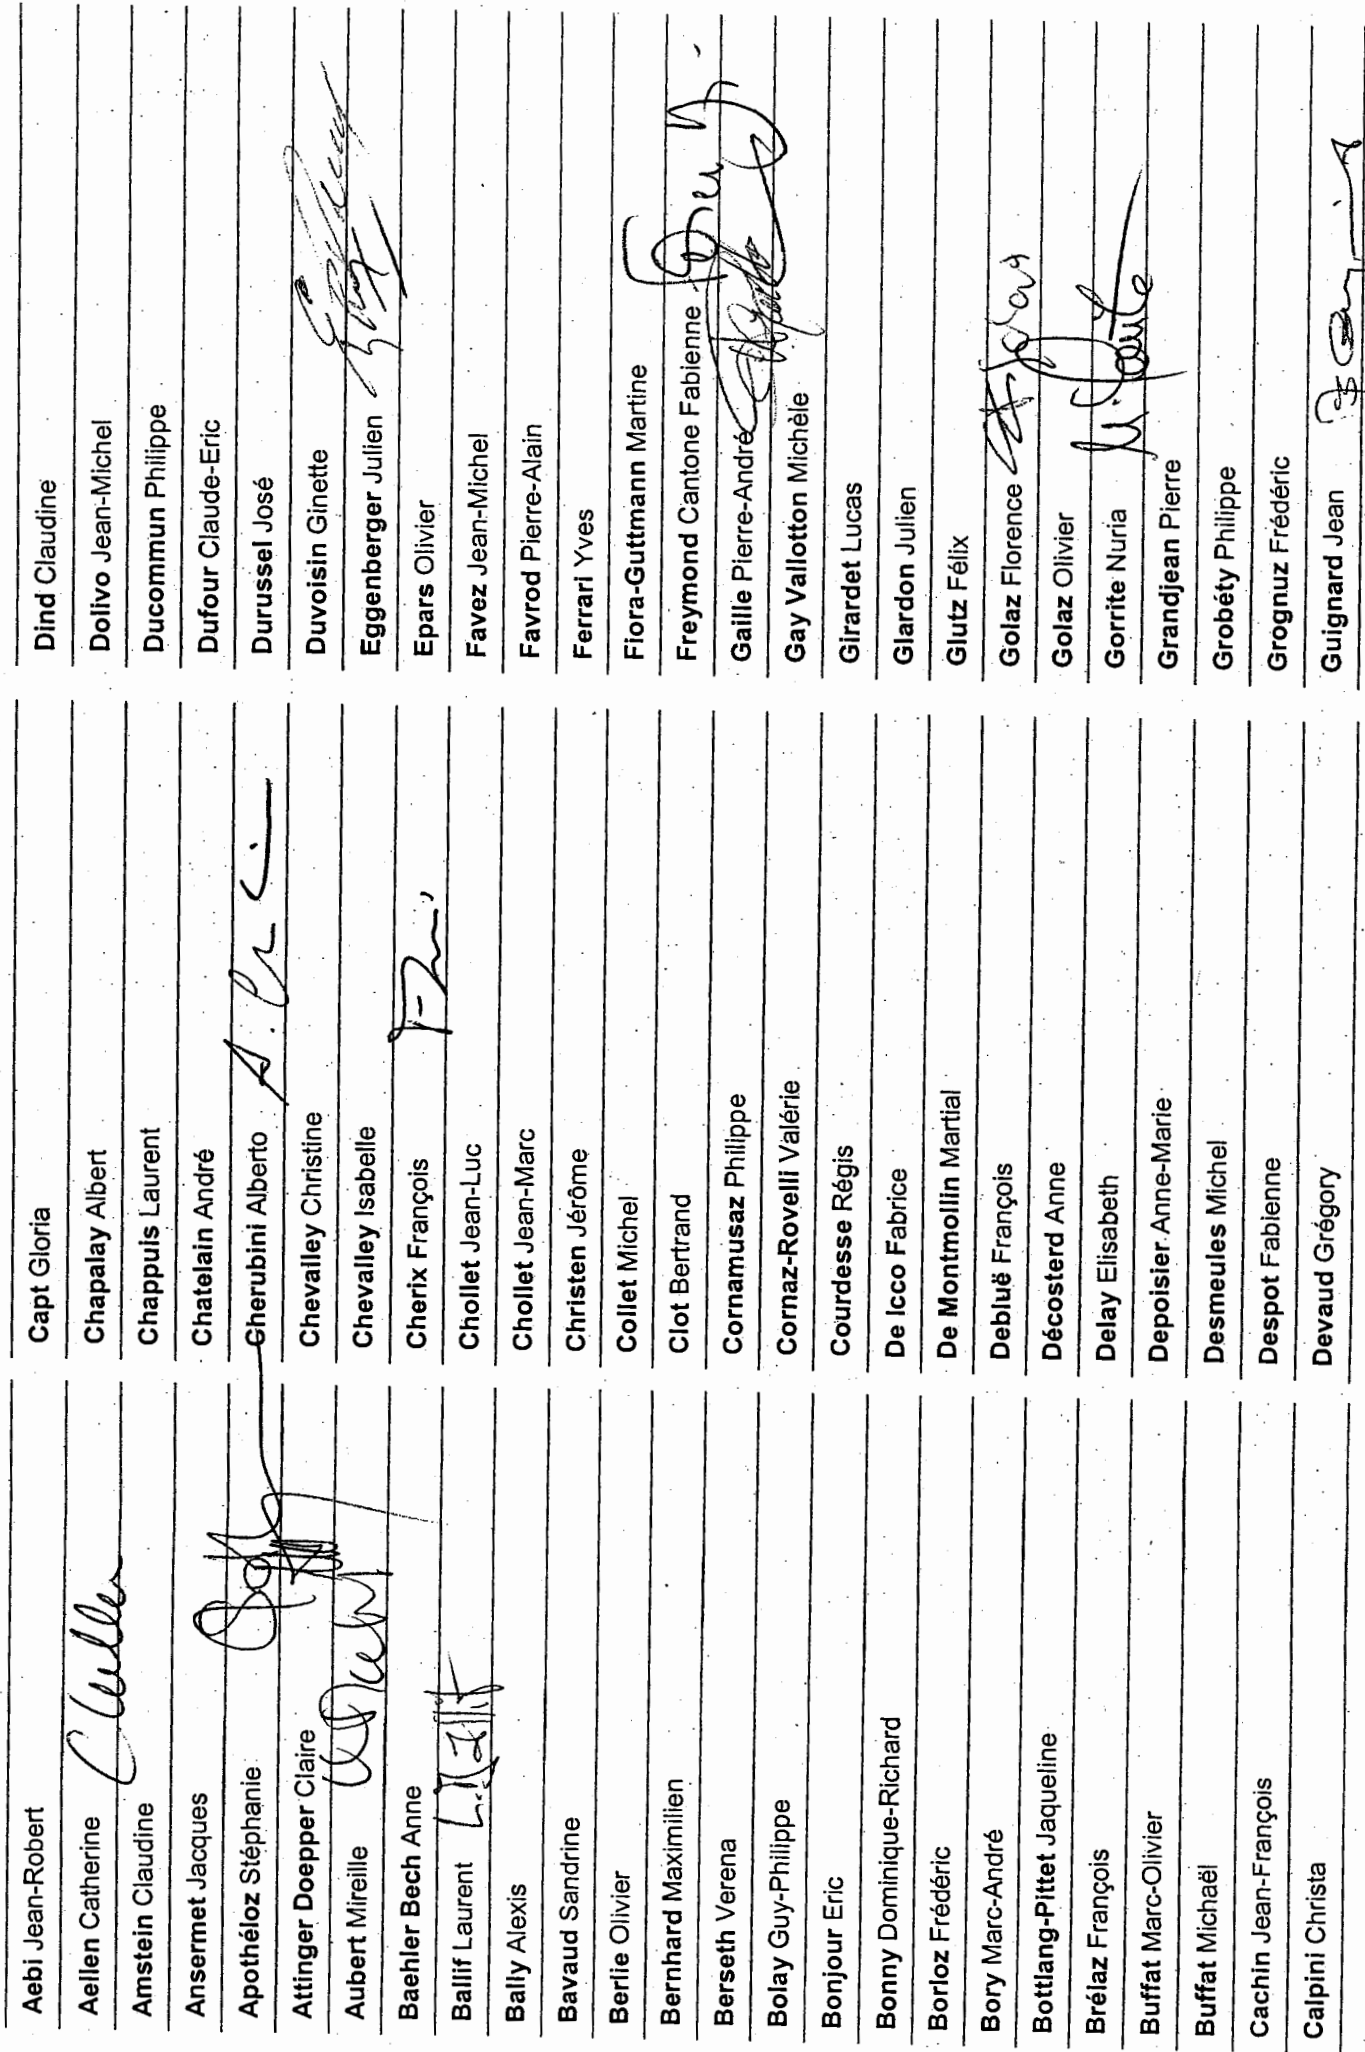 Aebi Jean-Robert
Aellen Catherine
Amstein Claudine
Ansermet Jacques
Apothéloz Stéphanie
Attinger Doepper Claire
Aubert Mireille
Baehler Bech Anne
Ballif Laurent L. Ballif
Bally Alexis
Bavaud Sandrine
Berlie Olivier
Bernhard Maximilien
Berseth Verena
Bolay Guy-Philippe
Bonjour Eric
Bonny Dominique-Richard
Borloz Frédéric
Bory Marc-André
Bottlang-Pittet Jaqueline
Brélaz François
Buffat Marc-Olivier
Buffat Michaël
Cachin Jean-François
Calpini Christa
Capt Gloria
Chapalay Albert
Chappuis Laurent
Chatelain André
Cherubini Alberto
Chevalley Christine
Chevalley Isabelle
Cherix François
Chollet Jean-Luc
Chollet Jean-Marc
Christen Jérôme
Collet Michel
Clot Bertrand
Cornamusaz Philippe
Cornaz-Rovelli Valérie
Courdesse Régis
De Icco Fabrice
De Montmollin Martial
Debluë François
Décosterd Anne
Delay Elisabeth
Depoisier Anne-Marie
Desmeules Michel
Despot Fabienne
Devaud Grégory
Dind Claudine
Dolivo Jean-Michel
Ducommun Philippe
Dufour Claude-Eric
Durussel José
Duvoisin Ginette
Eggenberger Julien
Epars Olivier
Favez Jean-Michel
Favrod Pierre-Alain
Ferrari Yves
Fiora-Guttmann Martine
Freymond Cantone Fabienne
Gaille Pierre-André
Gay Vallotton Michèle
Girardet Lucas
Glardon Julien
Glutz Félix
Golaz Florence
Golaz Olivier
Gorrite Nuria
Grandjean Pierre
Grobéty Philippe
Grognuz Frédéric
Guignard Jean